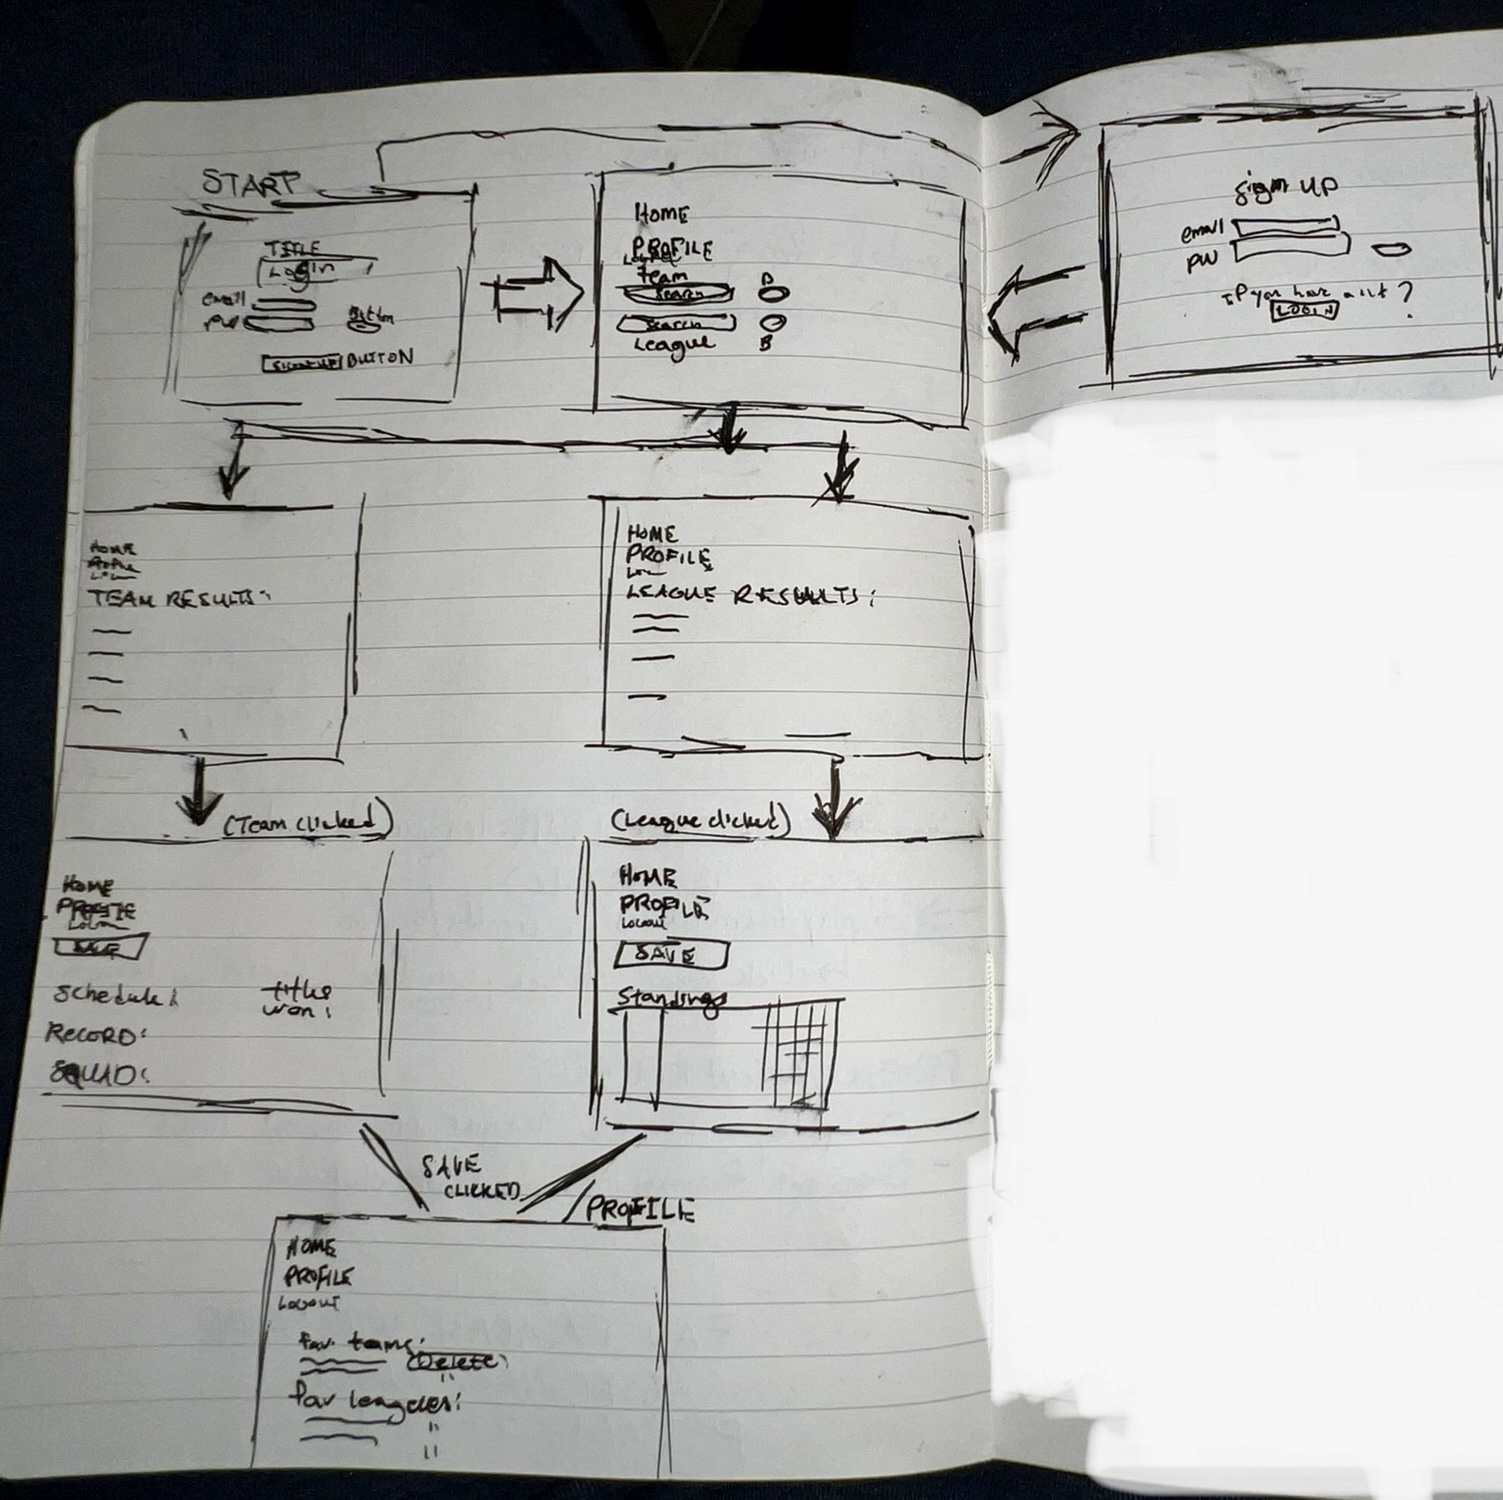 START
TITLE
Login
email
PW
Button
BUTTON
HOME
PROFILE
Team
Search
B
Search
League
B
sign up
email
PW
if you have acct?
LOGIN
HOME
Profile
TEAM RESULTS:
HOME
PROFILE
LEAGUE RESULTS:
(Team clicked)
HOME
PROFILE
SAVE
Schedule:
titles
won:
RECORD:
SQUAD:
(League clicked)
HOME
PROFILE
LOGOUT
SAVE
Standings
SAVE
CLICKED
/PROFILE
HOME
PROFILE
LOGOUT
fav. teams:
Delete
"
fav leagues:
"
"